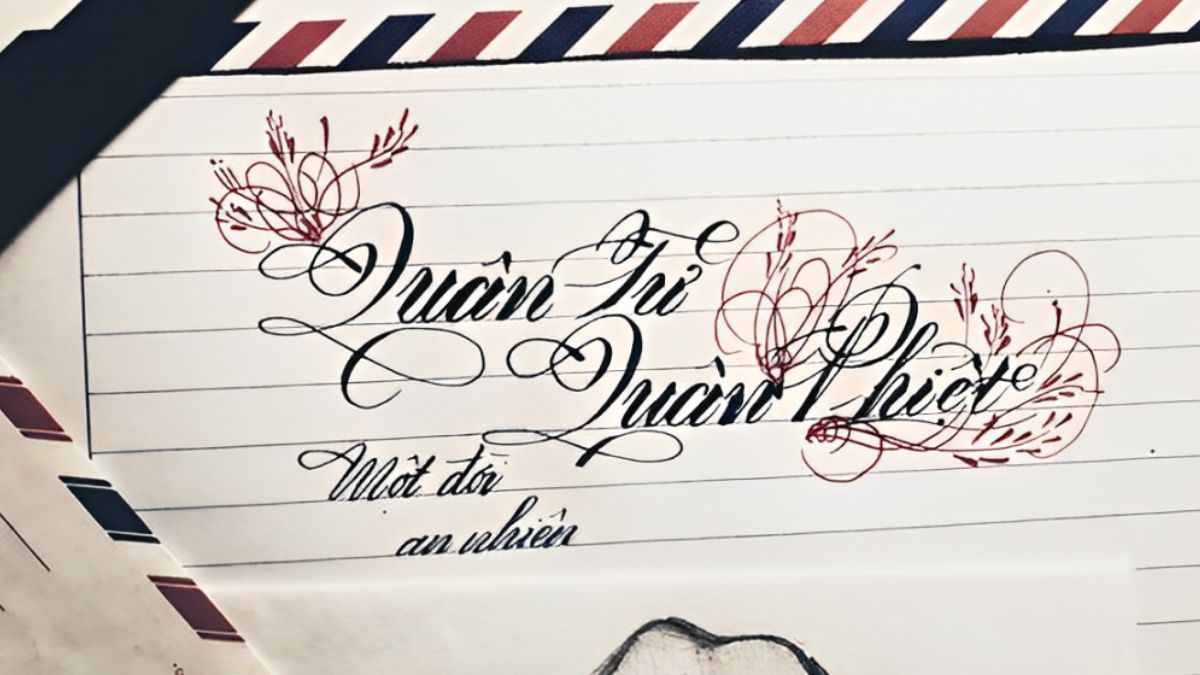 Quân Tử
Quân Phiệt
Một đời
an nhiên